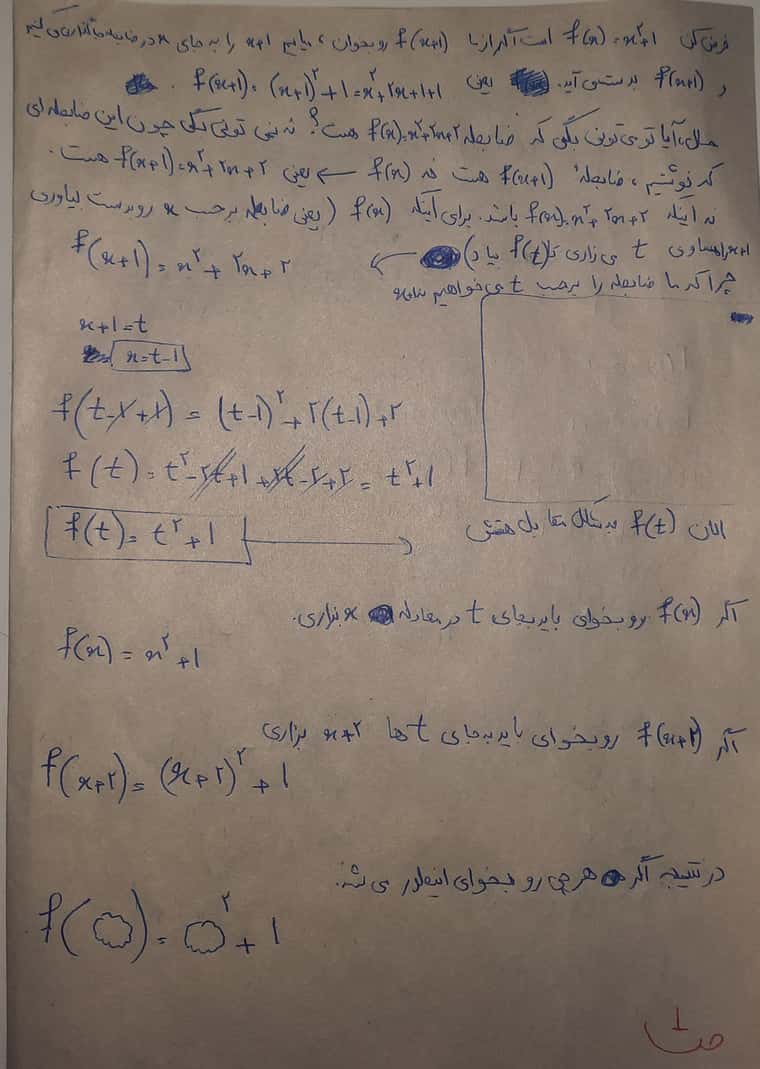 فرض کن f(x) = x²+1 است اگر از ما f(x+1) رو بخوان، میایم x+1 را به جای x در ضابطه جاگذاری می کنیم
و f(x+1) بدست می آید. یعنی f(x+1) = (x+1)²+1 = x²+2x+1+1 .
حال، آیا تو می تونی بگی که ضابطه f(x)=x²+2x+2 هست؟ نه نمی تونی بگی چون این ضابطه ای
که نوشتیم، ضابطهٔ f(x+1) هست نه f(x) ← یعنی f(x+1)=x²+2x+2 هست.
نه اینکه f(x)=x²+2x+2 باشد. برای اینکه f(x) (یعنی ضابطه برحسب x رو بدست بیاوری
x+1 را مساوی t می زاری تا f(t) بیاد)
f(x+1) = x²+2x+2
چرا که ما ضابطه را برحسب t می خواهیم نه x+1
x+1=t
x=t-1
f(t-1+1) = (t-1)²+2(t-1)+2
f(t) = t²-2t+1+2t-2+2 = t²+1
f(t) = t²+1
الان f(t) به شکل مقابل هستش
اگر f(x) رو بخوای باید بجای t در معادله x بزاری.
f(x) = x²+1
اگر f(x+2) رو بخوای باید به جای t ها x+2 بزاری
f(x+2) = (x+2)²+1
در نتیجه اگر هر چی رو بخوای اینطور می شه.
f( ) = ²+1
1